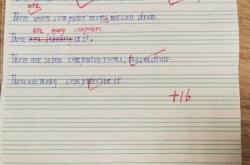 are
There seven computer rooms, we can draw.
are many computers
There are library in it.
There are seven computer rooms, we can draw.
There are many computer in it.
+16